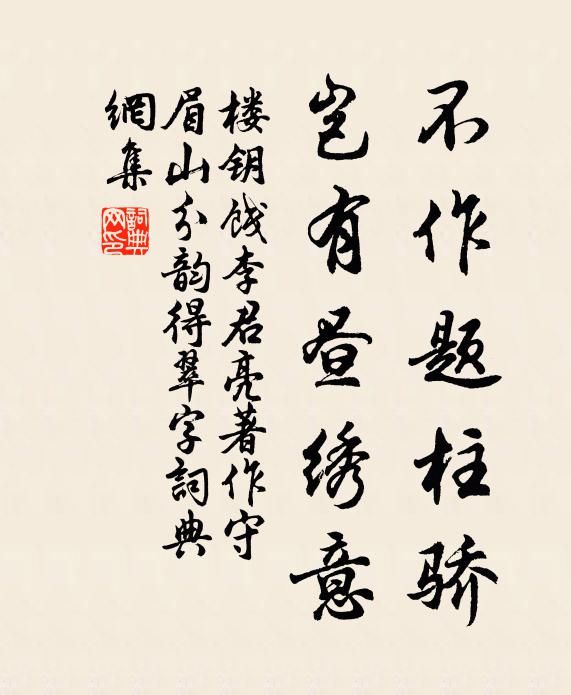 不作题柱骄
岂有昼绣意
楼钥饯李君亮著作守
眉山分韵得翠字词典
網集
詞典
网印